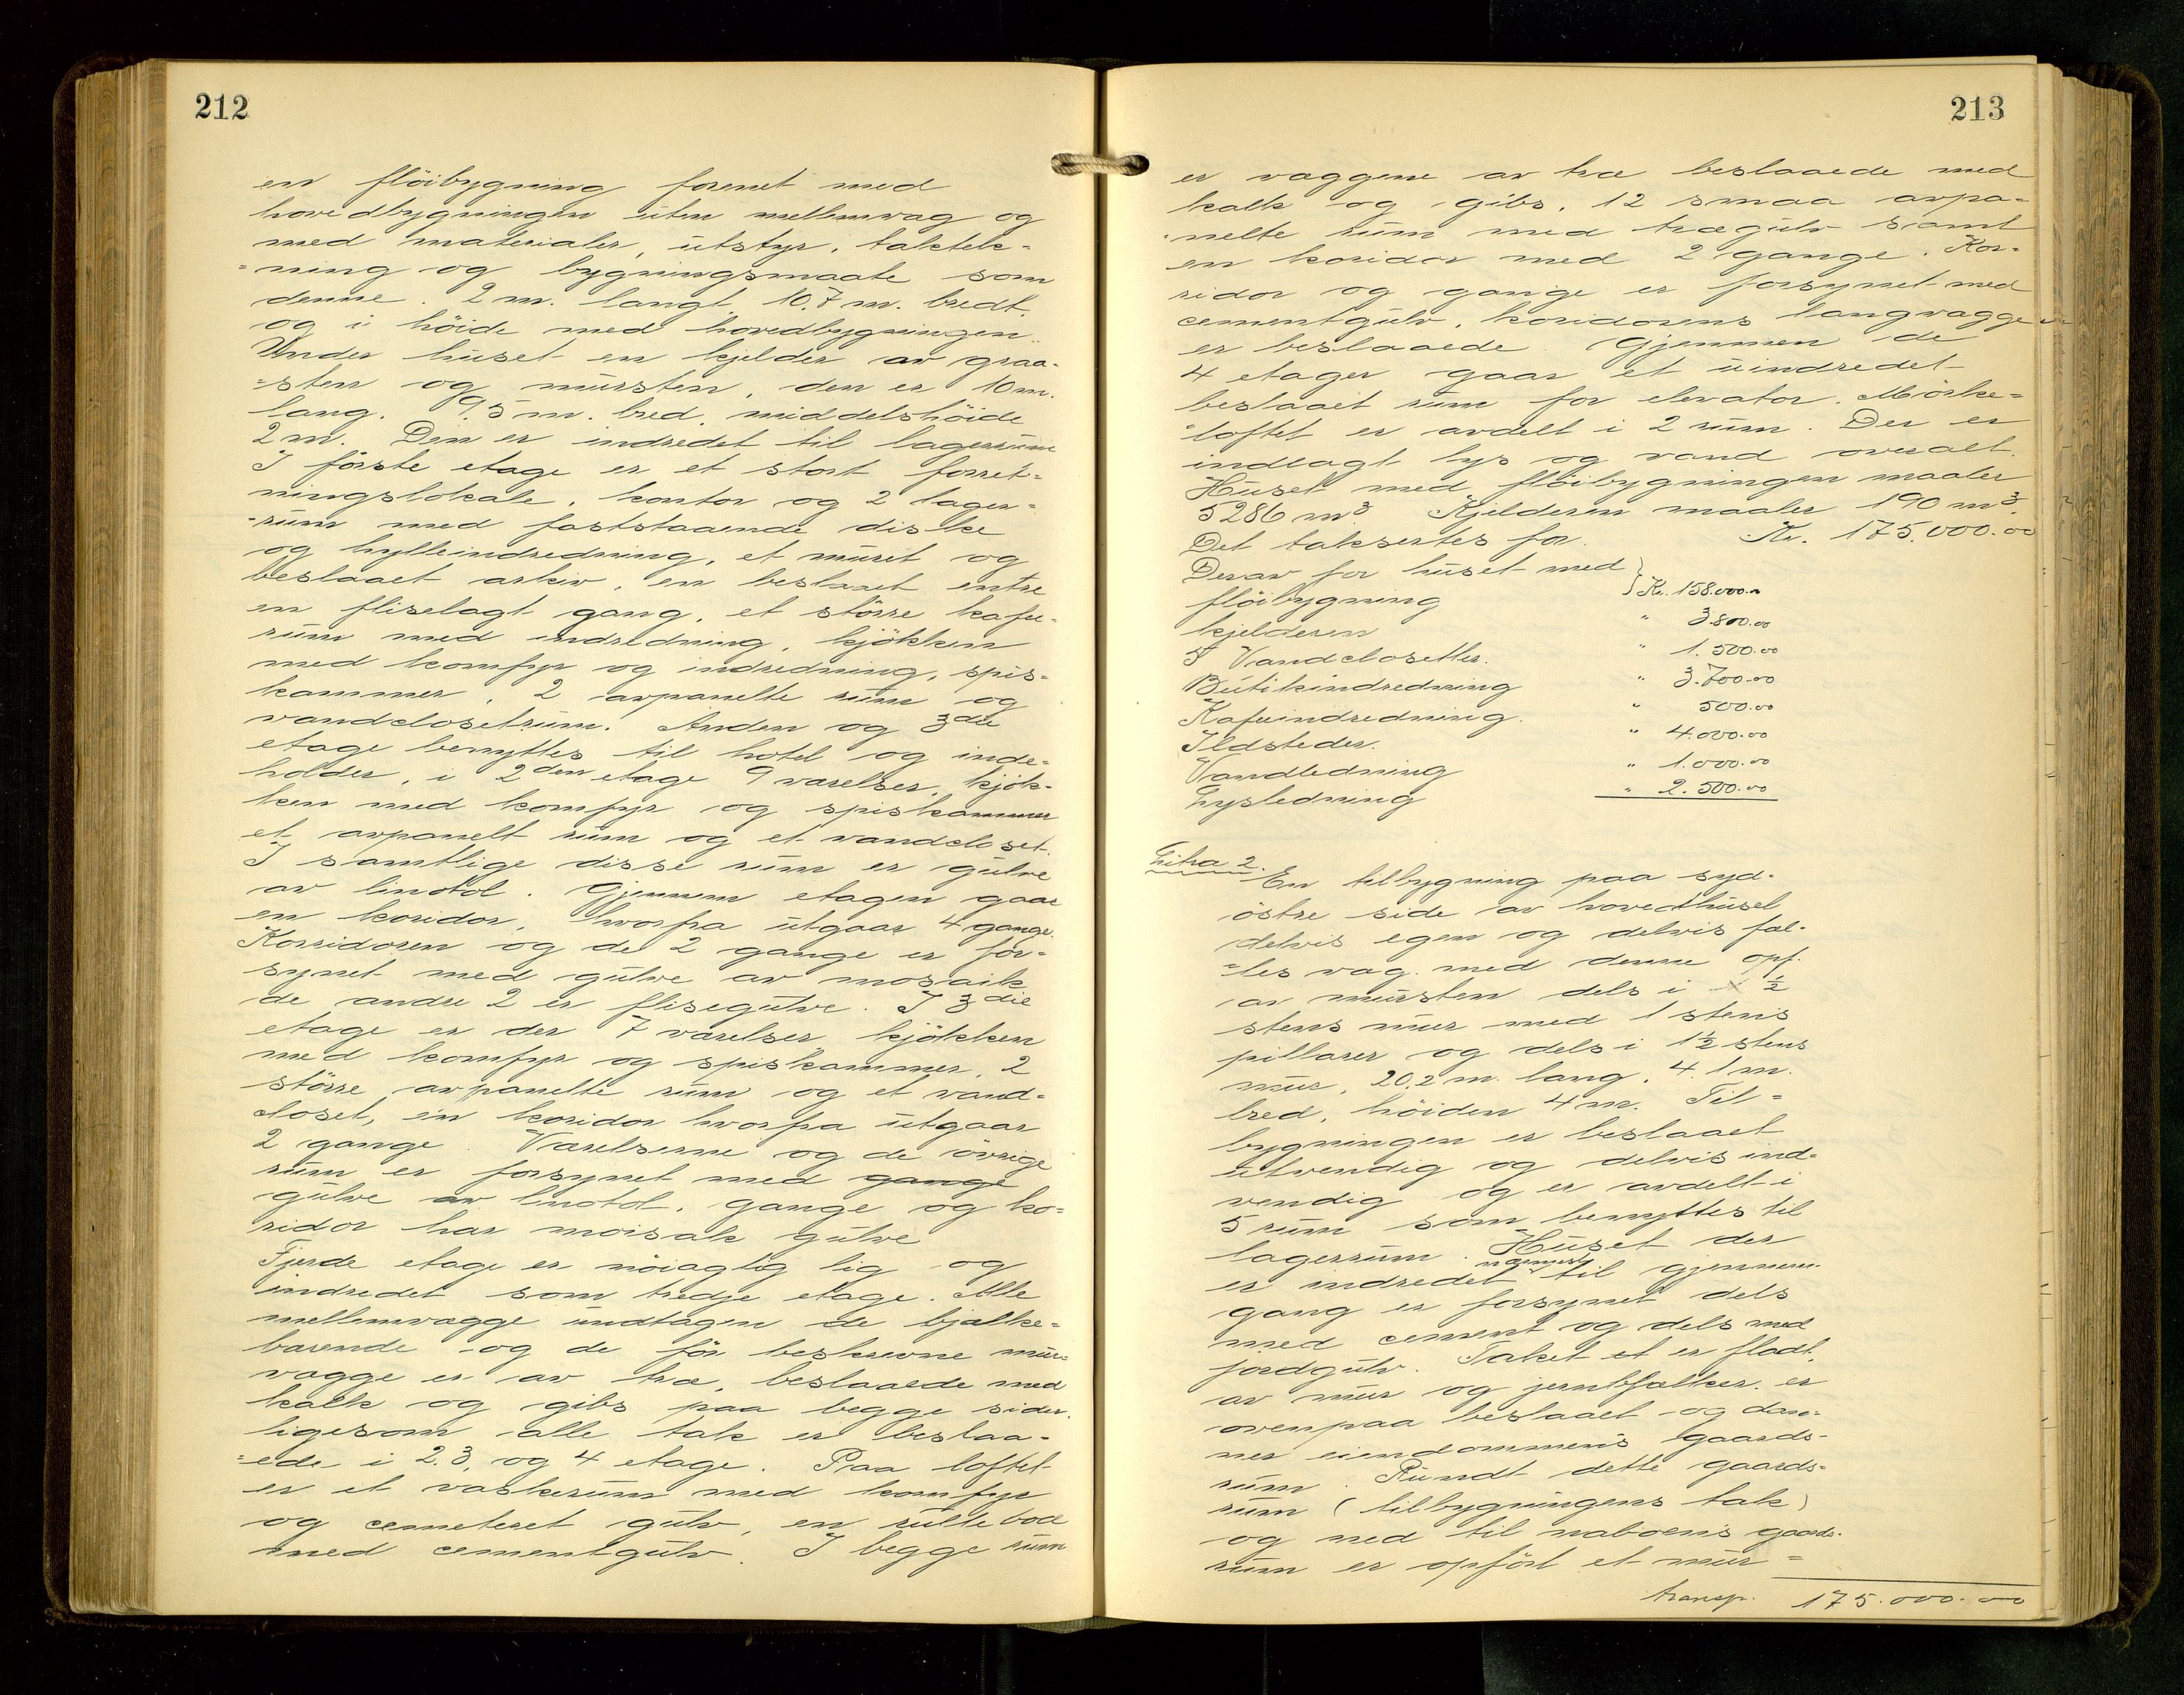 212
en flöibygning forenet med
hovedbygningen uten mellemvæg og
med materialer, utstyr, taktek-
=ning og bygningsmaate som
denne. 2 m. langt, 10.7 m. bredt,
og i höide med hovedbygningen.
Under huset en kjelder av graa-
=sten og mursten, den er 10 m.
lang. 9.5 m. bred, middelshöide
2 m. Den er indredet til lagerrum
I förste etage er et stort forret-
ningslokale, kontor og 2 lager-
-rum med faststaaende diske
og hylleindredning, et muret og
beslaaet arkiv, en beslaaet entre
en fliselagt gang, et större kafe-
rum med indredning, kjökken
med komfyr og indredning, spis-
kammer, 2 avpanelte rum og
vandclosetrum. Anden og 3die
etage benyttes til hotel og inde-
holder, i 2den etage 9 værelser, kjök-
ken med komfyr og spiskammer
et avpanelt rum og et vandcloset.
I samtlige disse rum er gulve
av linotol. Gjennem etagen gaar
en koridor, hvorfra utgaar 4 gange.
Korridoren og de 2 gange er for-
synet med gulve av mosaik
de andre 2 er flisegulve. I 3die
etage er der 7 værelser kjökken
med komfyr og spiskammer, 2
större avpanelte rum og et vand-
closet, en koridor hvorfra utgaar
2 gange. Værelserne og de övrige
rum er forsynet med gange
gulve av linotol, gange og ko-
ridor har moisak gulve
Fjerde etage er nöiagtig lig og
indredet som tredje etage. Alle
mellemvægge undtagen de bjælke-
bærende og de för beskrevne mur-
vægge er av træ, beslaaede med
kalk og gibs paa begge sider.
ligesom alle tak er beslaa-
=ede i 2. 3. og 4 etage. Paa loftet
er et vaskerum med komfyr
og cemeteret gulv, en rullebod
med cementgulv. I begge rum
213
er væggene av træ beslaaede med
kalk og gibs. 12 smaa avpa-
nelte rum med trægulv samt
en koridor med 2 gange. Kor-
ridor og gange er forsynet med
cementgulv, koridorens langvægge
er beslaaede. Gjennem de
4 etager gaar et uindredet
beslaaet rum for elevator. Mörke-
loftet er avdelt i 2 rum. Der er
indlagt lys og vand overalt.
Huset med flöibygningen maaler
5286 m³ Kjelderen maaler 190 m³.
Det taksertes for Kr. 175.000.00
Derav for huset med
flöibygning Kr. 158.000.00
kjelderen " 3.800.00
5 Vandclosetter. " 1.500.00
Butikindredning " 3.700.00
Kafeindredning. " 500.00
Ildsteder. " 4.000.00
Vandledning " 1.000.00
Lysledning " 2.500.00
Litra 2.
En tilbygning paa syd-
östre side av hovedhuset
delvis egen og delvis fæl-
=les væg med denne opf.
av mursten dels i ½
stens mur med 1 stens
pillarer og dels i 1½ stens
mur, 20.2 m. lang, 4.1 m.
bred, höiden 4 m. Til=
bygningen er beslaaet
utvendig og delvis ind-
vendig og er avdelt i
5 rum som benyttes til
lagerrum. Huset der
nærmest
er indredet til gjennem-
gang er forsynet dels
med cement og dels med
jordgulv. Taket et er fladt,
av mur og jernbjælker. er
ovenpaa beslaaet og dan-
ner eiendommens gaards-
rum. Rundt dette gaards-
rum (tilbygningens tak)
og ned til naboens gaards-
rum er opfört et mur=
transp. 175.000.00